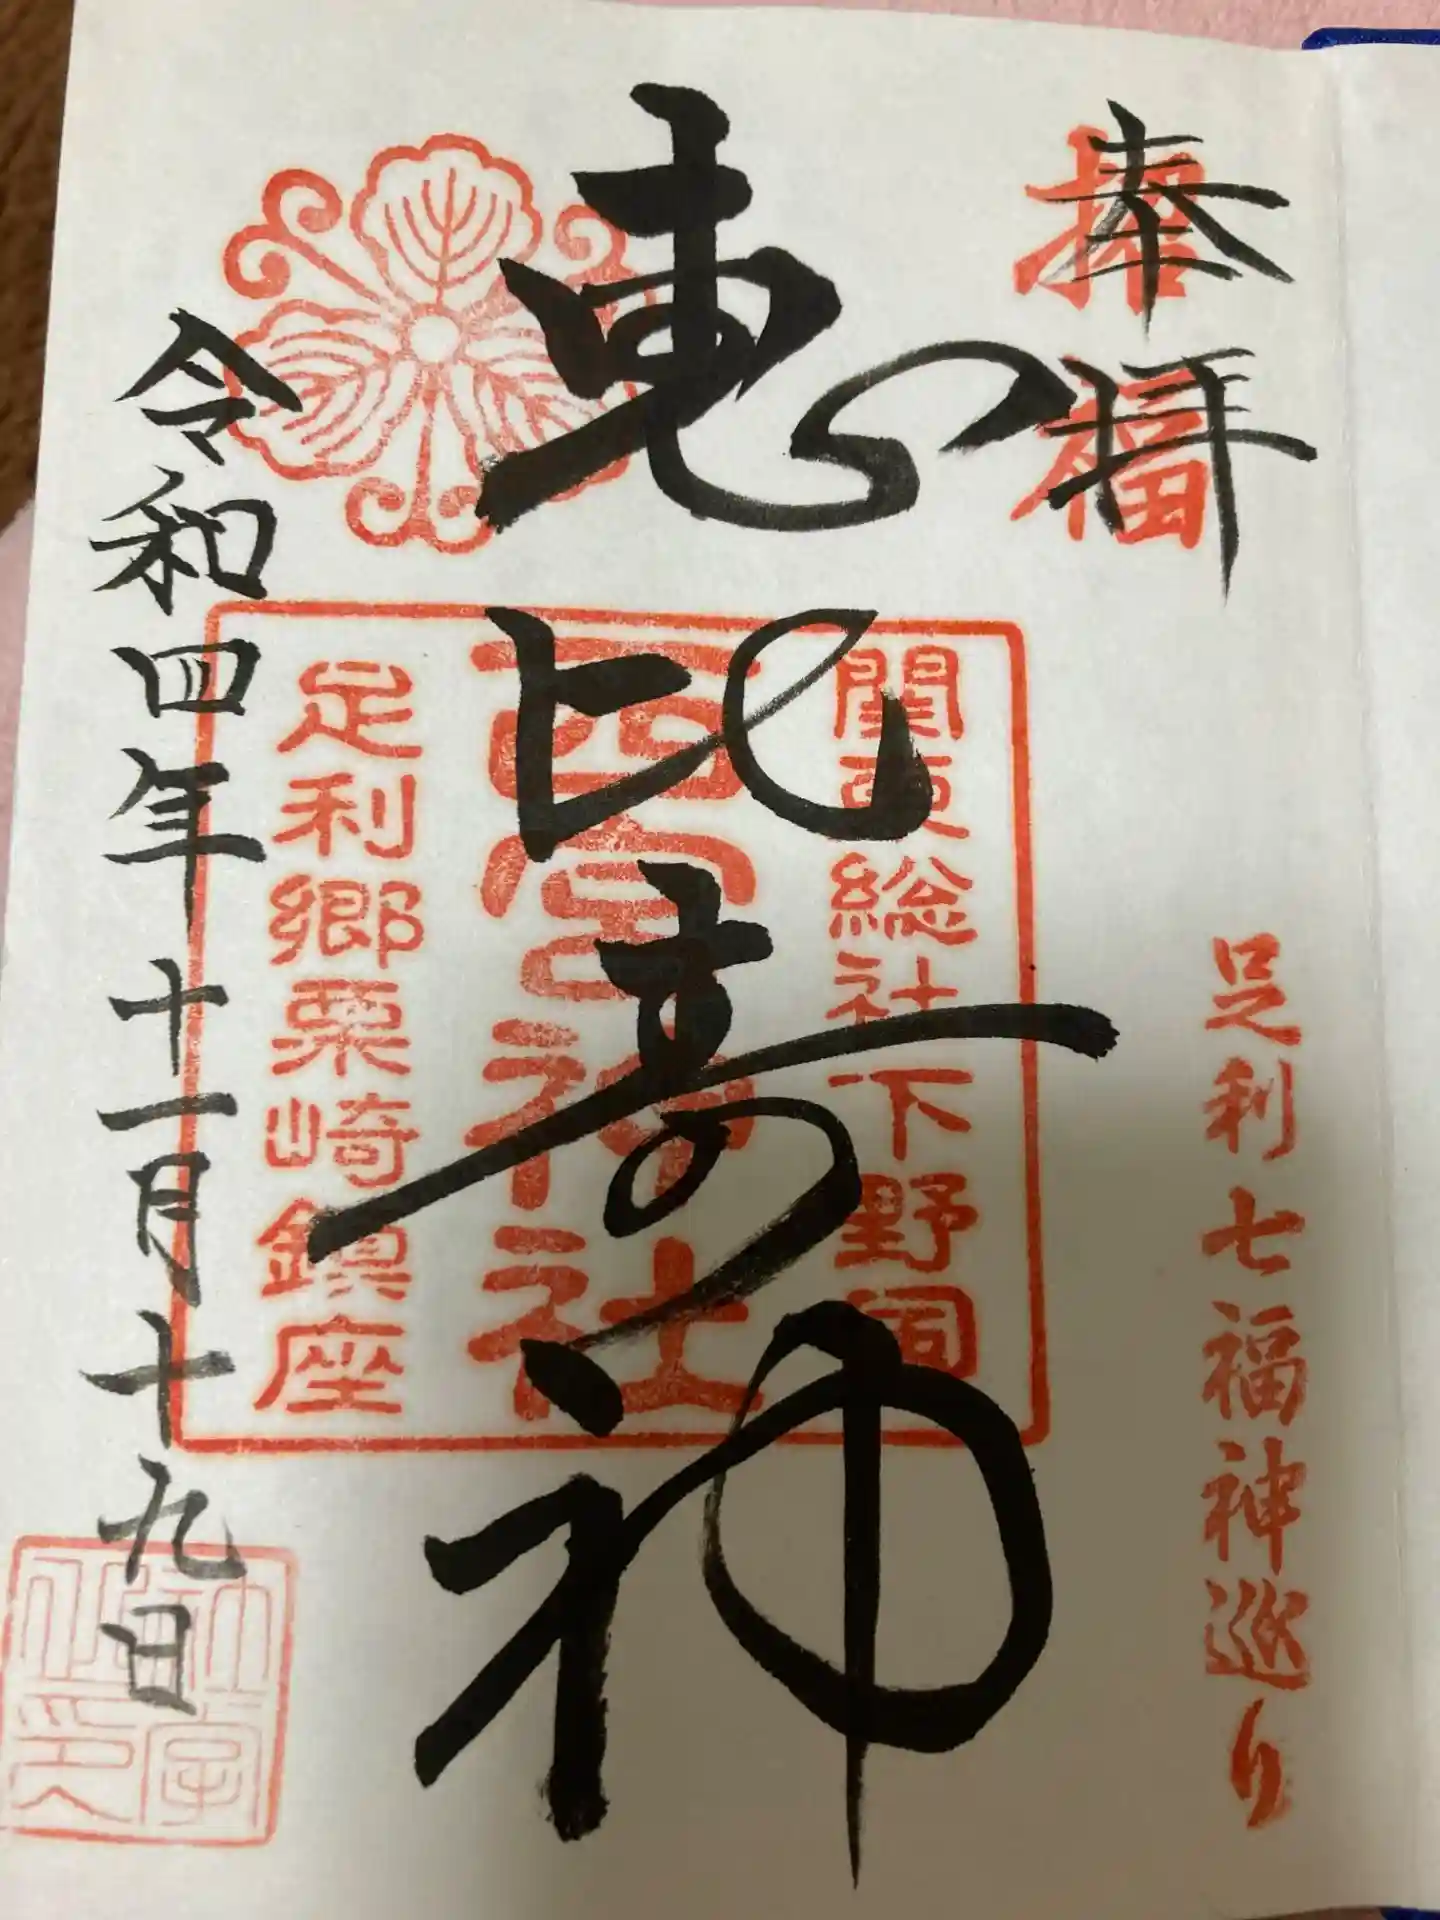 奉拝
足利七福神巡り
恵比寿神
関東総社下野国
西宮神社
足利郷栗崎鎮座
令和四年十一月十九日